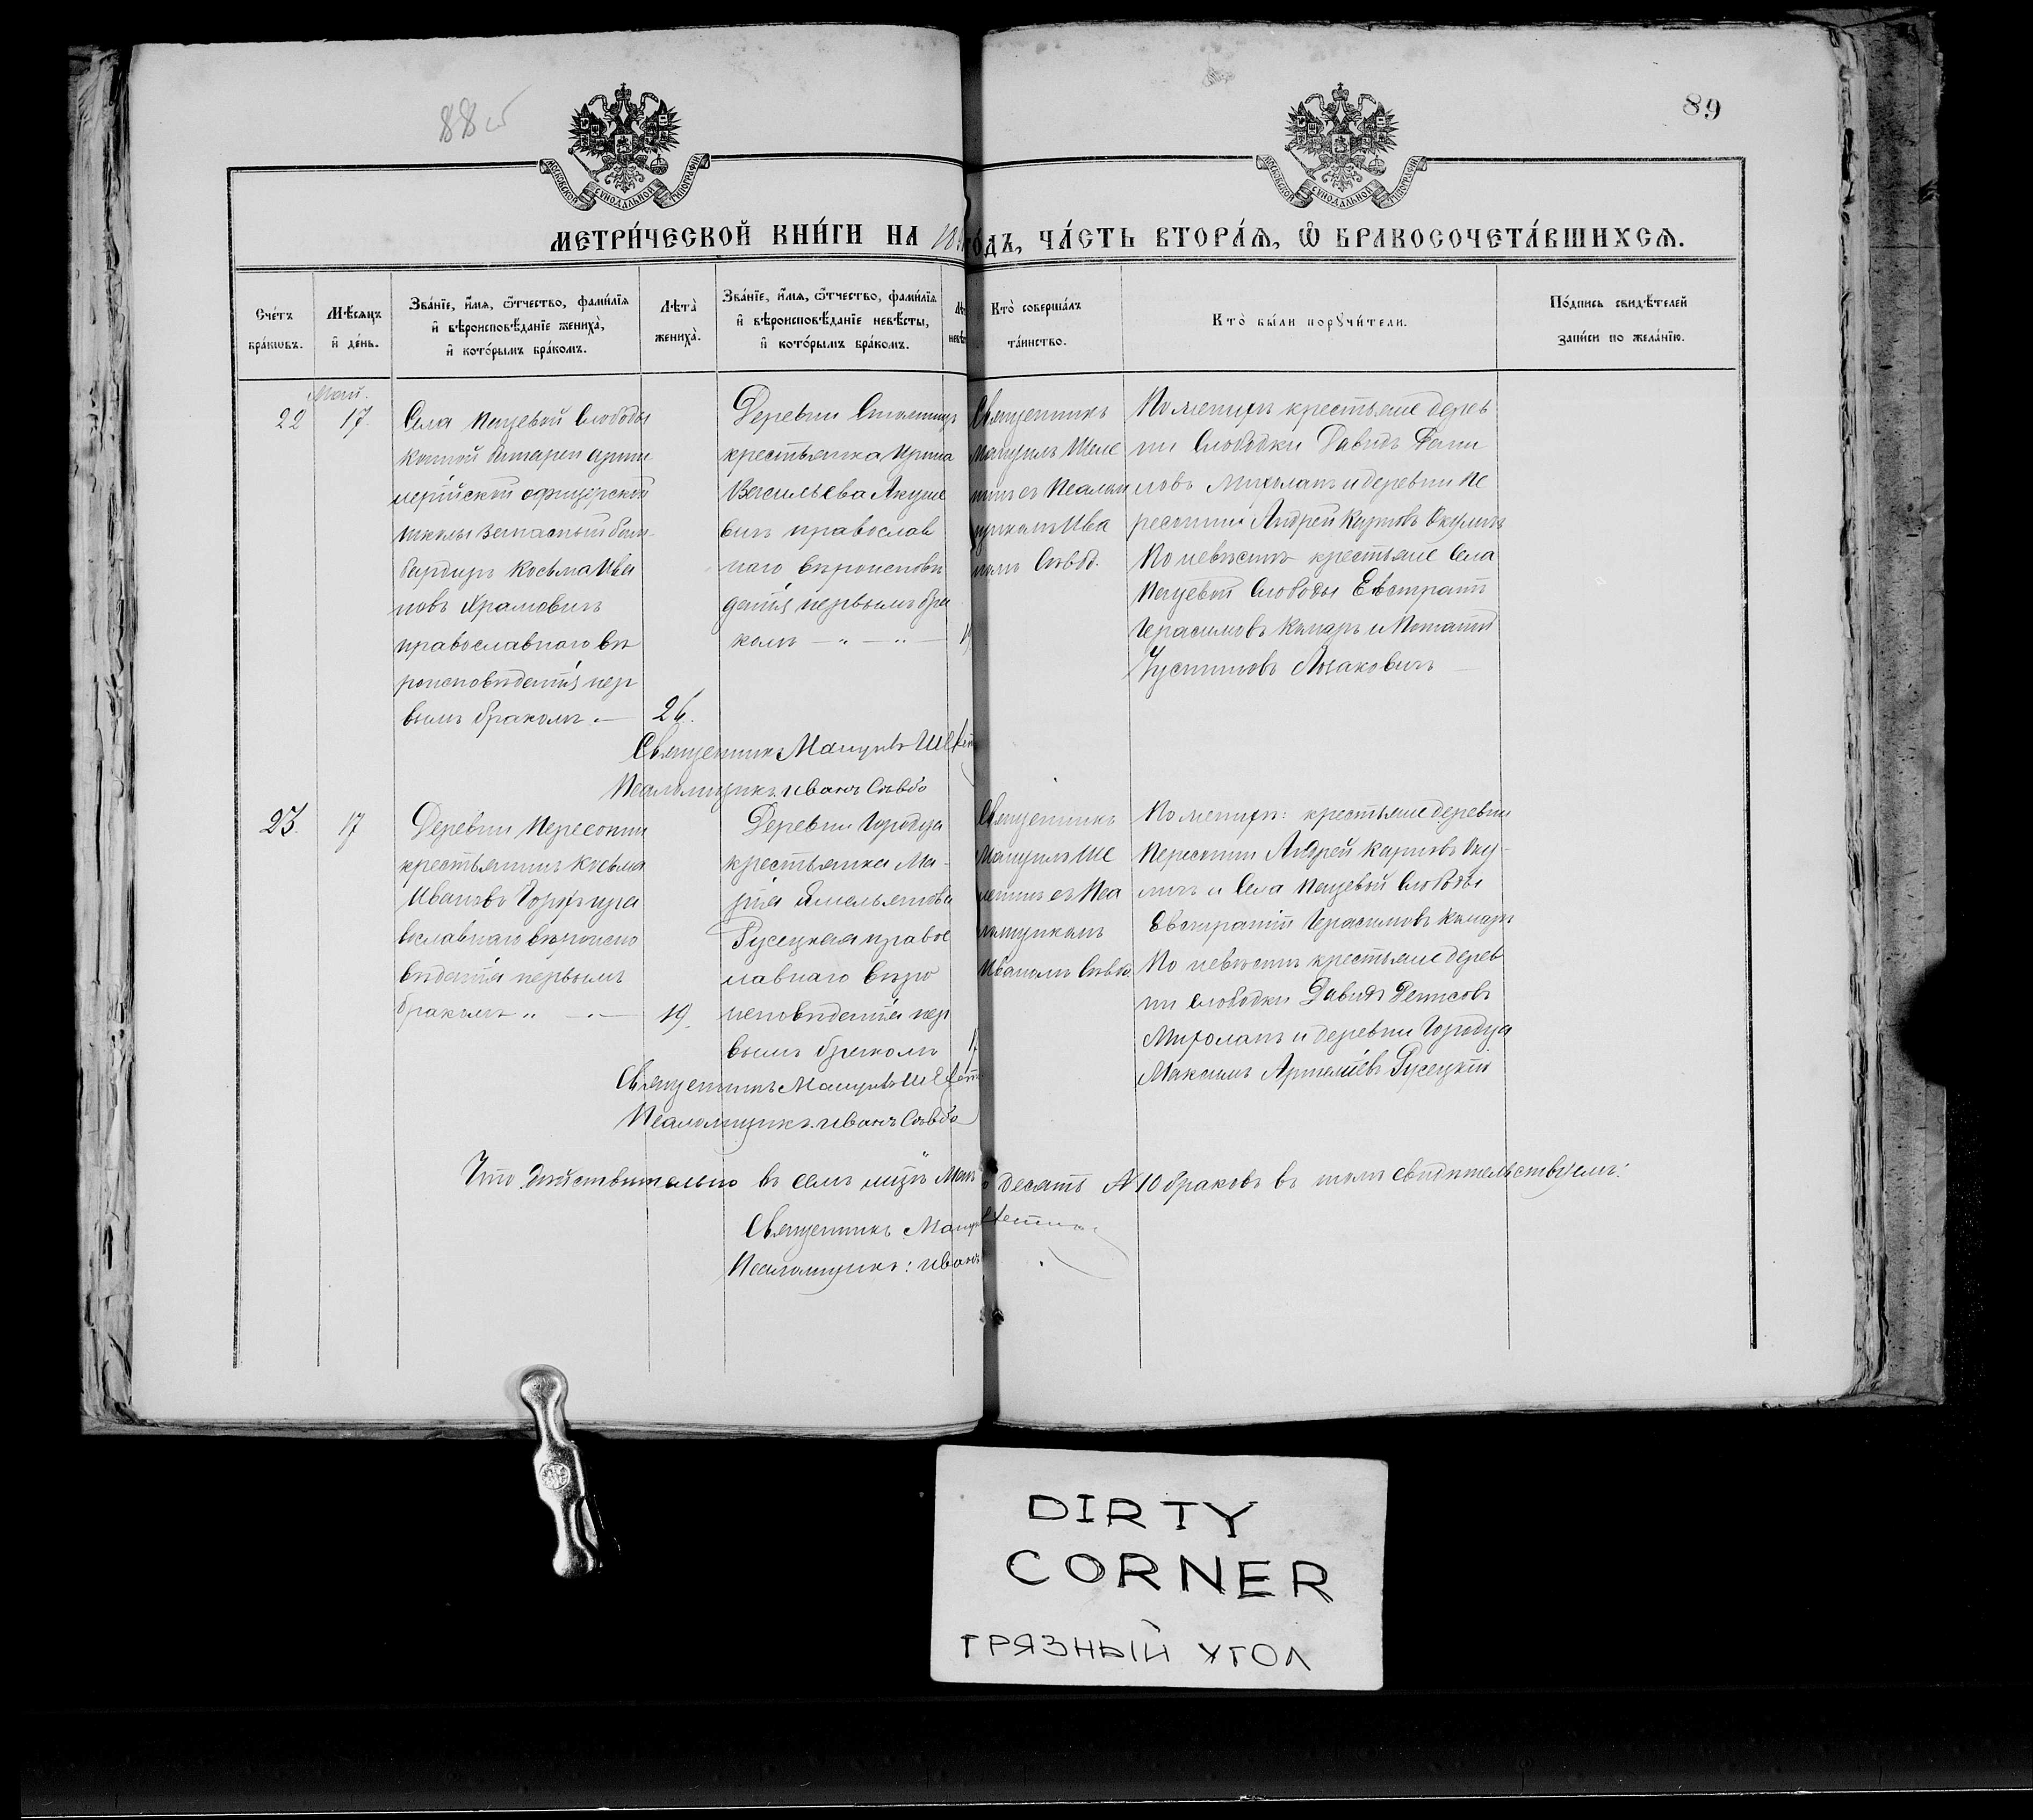 88 об
89
МОСКОВСКОЙ СѴНОДАЛЬНОЙ ТИПОГРАФІИ
МОСКОВСКОЙ СѴНОДАЛЬНОЙ ТИПОГРАФІИ
МЕТРИ́ЧЕСКОЙ КНИ́ГИ НА 18 ГО́ДЪ, ЧА́СТЬ ВТОРА́Ѧ, Ѽ БРАКОСОЧЕТА́ВШИХСѦ.
Сче́тъ
бра́кѡвъ.
Мѣ́сѧцъ
и҆ де́нь.
Зва́нїе, и҆́мѧ, ѻ҆́тчество, фами́лїѧ
и҆ вѣроисповѣ́данїе жениха̀,
и҆ кото́рымъ бра́комъ.
Лѣта̀
жениха̀.
Зва́нїе, и҆́мѧ, ѻ҆́тчество, фами́лїѧ
и҆ вѣроисповѣ́данїе невѣ́сты,
и҆ кото́рымъ бра́комъ.
Кто̀ соверша́лъ
та́инство.
Кто̀ бы́ли порꙋчи́тели.
По́дпись свидѣ́телей
за́писи по жела́нїю.
Май.
22
17.
Села Пуцевой Слободы
конной батареи артил
лерійской офицерской
школы запасный бом-
бардиръ Косьма Ива
новъ Храмовичъ
православнаго вѣ
роисповѣданія пер
вымъ бракомъ. —
26.
Деревни
крестьянка Ирина
Васильева
православ
наго вѣроисповѣ
данія первымъ бра
комъ — " — " —
Священникъ
Мануилъ Шеле
съ Псалом
щикомъ Ива
номъ
По женихѣ крестьяне дерев
ни Слободки Давидъ Дени
совъ Михолапъ и деревни Пе
ресопни Андрей Карповъ Окуличъ
По невѣстѣ крестьяне Села
Слободы Евстратій
Герасимовъ Комаръ и Потапій
Іустиновъ
Священникъ Мануилъ
Псаломщикъ Иванъ
23.
17
Деревни Пересопни
крестьянинъ Косьма
Ивановъ пра
вославнаго вѣроиспо
вѣданія первымъ
бракомъ " — " —
19.
Деревни Городца
крестьянка Ма-
рія Емельянова
Русецкая правос
лавнаго вѣро
исповѣданія пер
вымъ бракомъ
Священникъ
Мануилъ Ше
съ Пса
ломщикомъ
Иваномъ
По женихѣ: крестьяне деревни
Пересопни Андрей Карповъ Оку-
личъ и Села Слободы
Евстратій Герасимовъ Комаръ
По невѣстѣ крестьяне дерев
ни Слободки Давидъ Денисовъ
Михолапъ и деревни Городца
Максимъ Русецкій
Священникъ Мануилъ
Псаломщикъ Иванъ
Что дѣйствительно въ семъ м-цѣ Маѣ десять № 10 браковъ въ томъ свидѣтельствуемъ:
Священникъ
Псаломщикъ: Иванъ
DIRTY
CORNER
ГРЯЗНЫЙ УГОЛ